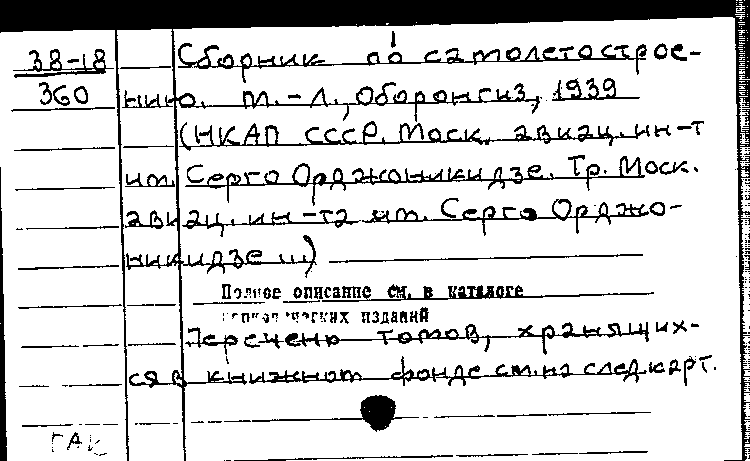 38-18
360
Сборник по самолетострое-
нию. М.-Л., Оборонгиз, 1939
(НКАП СССР. Моск. авиац. ин-т
им. Серго Орджоникидзе. Тр. Моск.
авиац. ин-та им. Серго Орджо-
никидзе ...)
Полное описание см. в каталоге
изданий
Перечень томов, хранящих-
ся в книжном фонде см. на след. карт.
ГАК